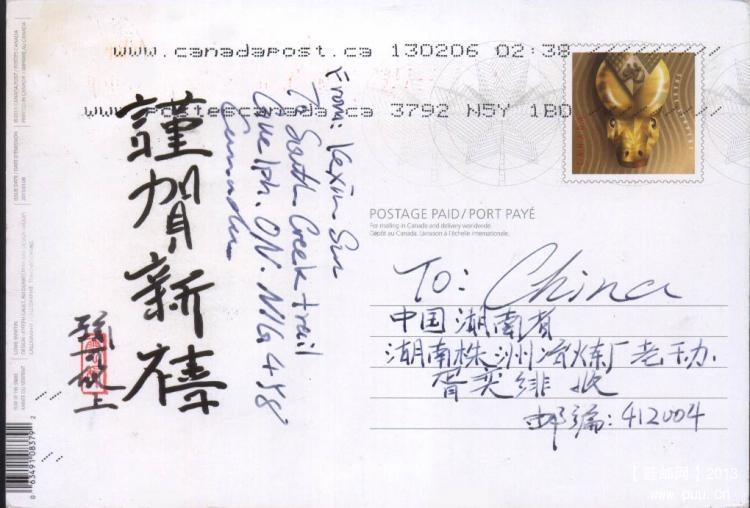 www.canadapost.ca 130206 02:38
www.postescanada.ca 3792 N5Y 1B0
CANADA
POSTAGE PAID/PORT PAYÉ
For mailing in Canada and delivery worldwide.
Dépôt au Canada. Livraison à l'échelle internationale.
To: China
中国湖南省
湖南株洲冶炼厂老干办
胥奕绯 收
邮编:412004
From: Kexin Sun
To South Creek trail
Guelph. ON. N1G 4Y8
Canada
謹賀新禧
上
0 63491 08379 2
【荟邮网】2013
www.puu.cn